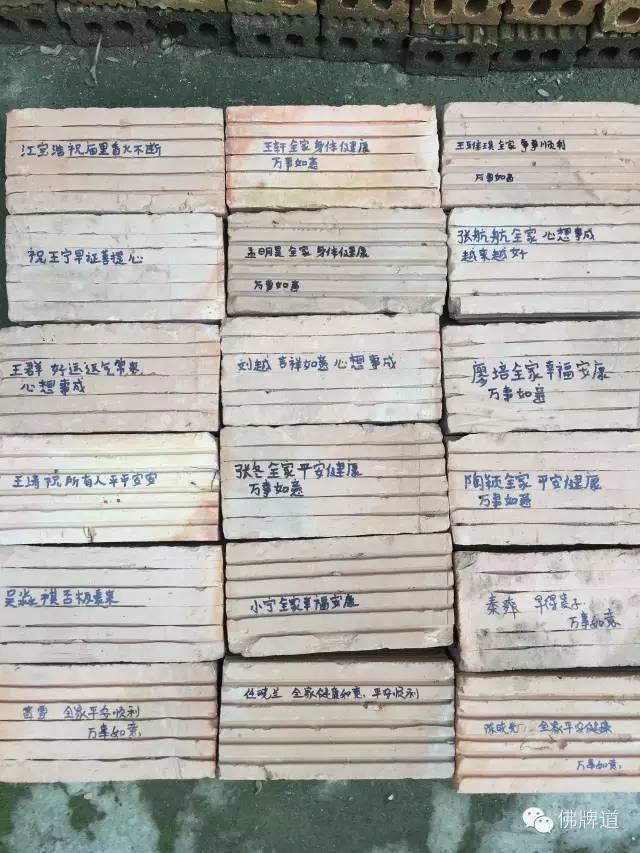 江宝浩祝庙里香火不断
王轩全家身体健康
万事如意
全家事事顺利
万事如意
祝王宁早证菩提心
孟明昊全家身体健康
万事如意
张航航全家心想事成
越来越好
王群 好运运气常来
心想事成
刘越 吉祥如意 心想事成
廖培全家幸福安康
万事如意
祝所有人平平安安
张冬全家平安健康
万事如意
陶颖全家平安健康
万事如意
吴淼祺否极泰来
小宁全家幸福安康
秦葬 早得贵子
万事如意
雷雪 全家平安顺利
万事如意.
伍晓兰 全家健康如意、平安顺利
陈晓光 全家平安健康
万事如意.
佛牌道